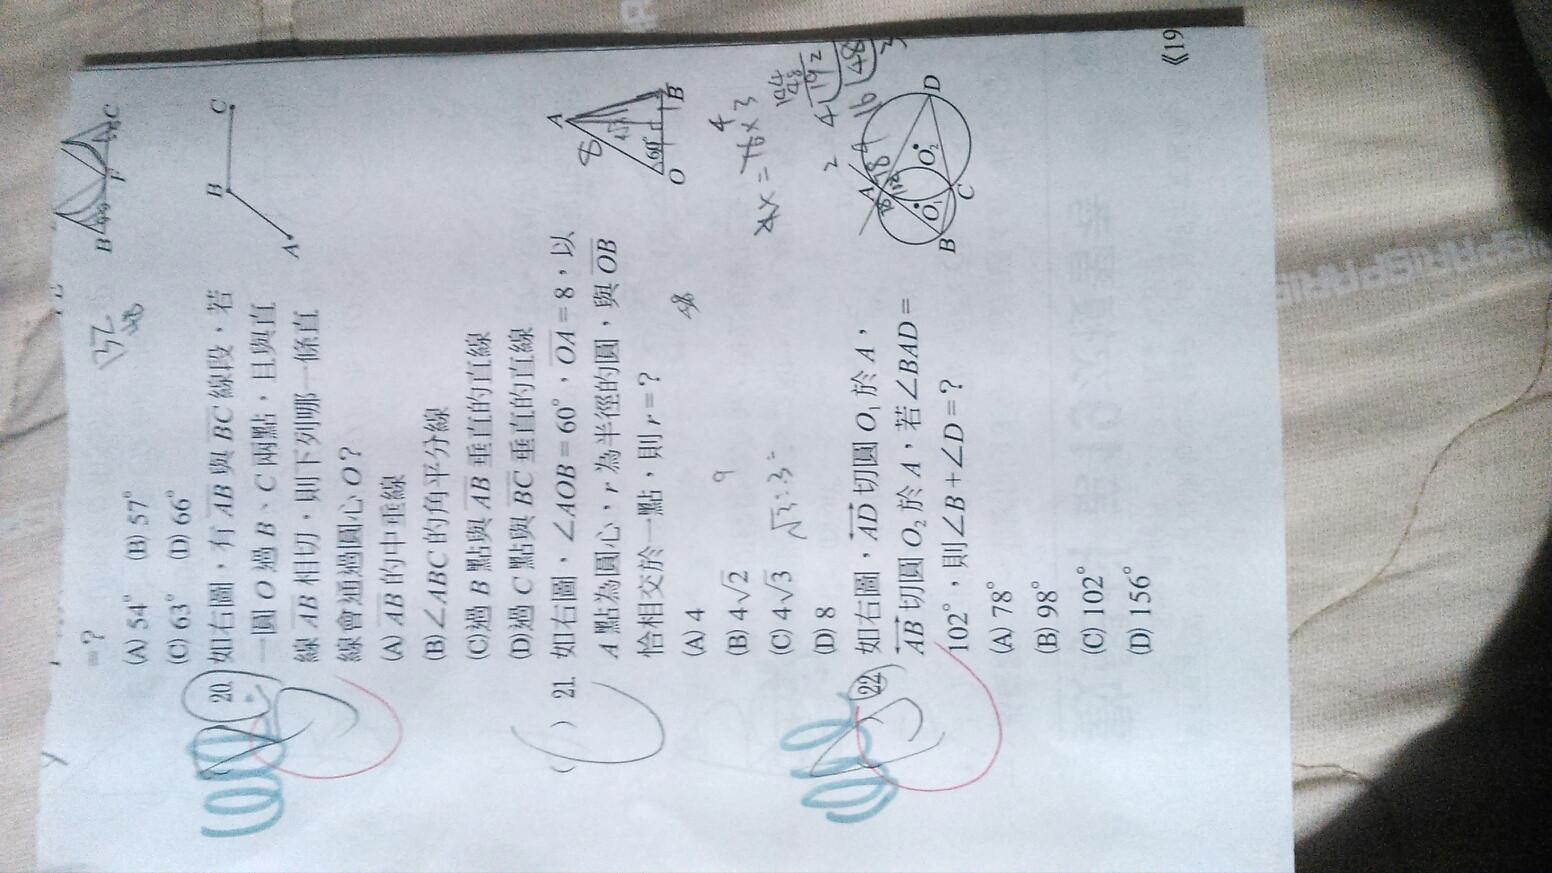 =?
(A) 54° (B) 57°
(C) 63° (D) 66°
20. 如右圖，有 AB 與 BC 線段，若
一圓 O 過 B、C 兩點，且與直
線 AB 相切，則下列哪一條直
線會通過圓心 O？
(A) AB 的中垂線
(B) ∠ABC 的角平分線
(C) 過 B 點與 AB 垂直的直線
(D) 過 C 點與 BC 垂直的直線
A
B
C
( ) 21. 如右圖，∠AOB = 60°，OA = 8，以
A 點為圓心，r 為半徑的圓，與 OB
恰相交於一點，則 r = ？
(A) 4
(B) 4√2
(C) 4√3
(D) 8
A
8
60°
O
B
22. 如右圖，AD 切圓 O₁ 於 A，
AB 切圓 O₂ 於 A，若 ∠BAD =
102°，則∠B + ∠D = ？
(A) 78°
(B) 98°
(C) 102°
(D) 156°
A
O₁
O₂
B
C
D
B
F
C
√3:3=
9
48
《19